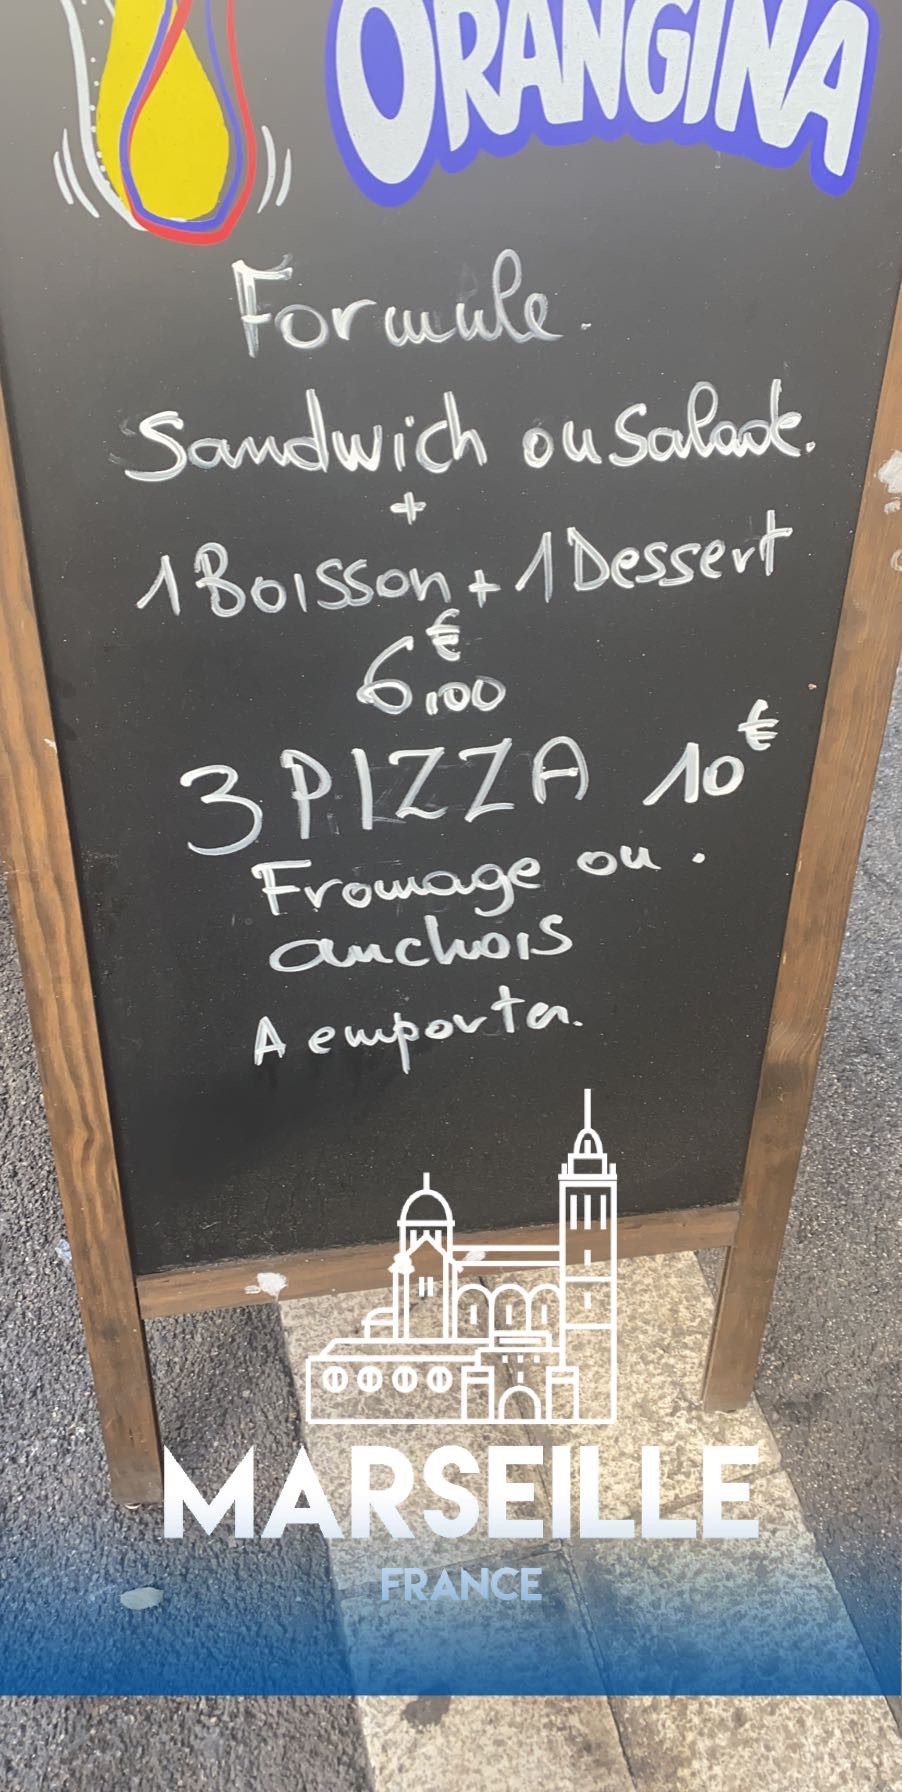 ORANGINA
Formule.
Sandwich ou Salade.
+
1 Boisson + 1 Dessert
6,00€
3 PIZZA 10€
Fromage ou.
anchois
A emporter.
MARSEILLE
FRANCE